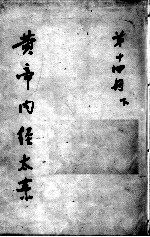 第十四册 下
黄帝内經太素